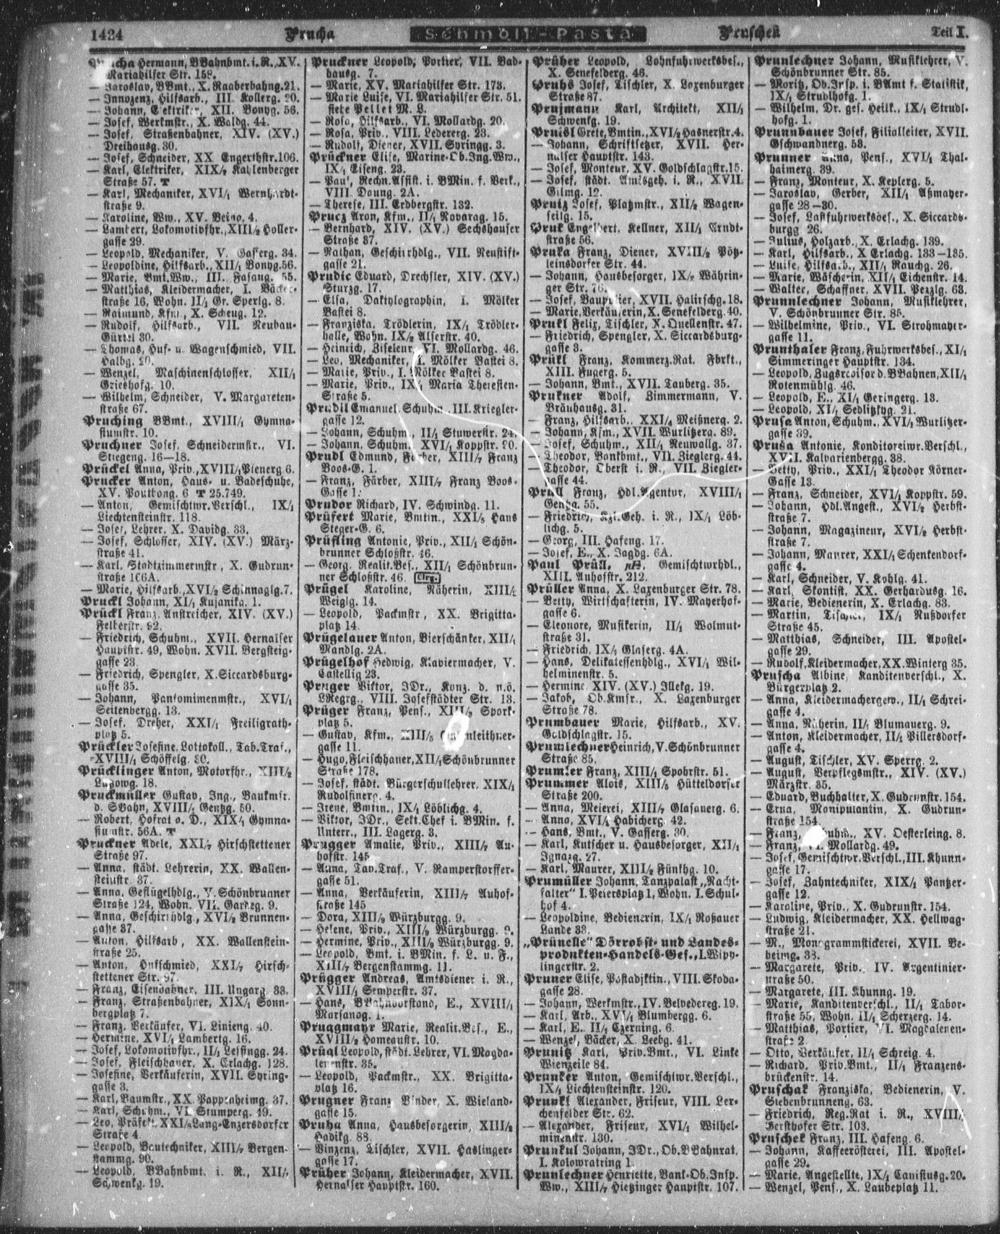 1424
Prucha
Schmoll-Pasta
Pruschek
Teil I.
Prucha Hermann, BBahnbmt. i. R., XV.
Mariahilfer Str. 158.
— Jaroslav, BBmt., X. Raaberbahng. 21.
— Innozenz, Hilfsarb., III. Kollerg. 20.
— Johann, Elektriker, XII. Bonyg. 56.
— Josef, Werkmstr., X. Waldg. 44.
— Josef, Straßenbahner, XIV. (XV.)
Dreihausg. 30.
— Josef, Schneider, XX. Engerthstr. 106.
— Karl, Elektriker, XIX/4 Kahlenberger
Straße 57. T
— Karl, Mechaniker, XVI/1 Wernhardt-
straße 9.
— Karoline, Ww., XV. Being. 4.
— Lambert, Lokomotivfhr., XIII/2 Holler-
gasse 29.
— Leopold, Mechaniker, V. Gasserg. 34.
— Leopoldine, Hilfsarb., XII/1 Bonyg. 56.
— Marie, Bmt.Ww., III. Fasang. 55.
— Matthias, Kleidermacher, I. Bäcker-
straße 16, Wohn. II/1 Gr. Sperlg. 8.
— Raimund, Kfm., X. Scheug. 12.
— Rudolf, Hilfsarb., VII. Neubau-
Gürtel 30.
— Thomas, Huf- u. Wagenschmied, VII.
Halbg. 20.
— Wenzel, Maschinenschlosser, XII/1
Grieshofg. 10.
— Wilhelm, Schneider, V. Margareten-
straße 67.
Pruching BBmt., XVIII/1 Gymna-
siumstr. 10.
Pruchner Josef, Schneidermstr., VI.
Stiegeng. 16—18.
Prückel Anna, Priv., XVIII/1 Plenerg. 6.
Prucker Anton, Haus- u. Badeschuhe,
XV. Pouthong. 6 T 25.749.
— Anton, Gemischtwr.Verschl., IX/1
Liechtensteinstr. 118.
— Josef, Lehrer, X. Davidg. 33.
— Josef, Schlosser, XIV. (XV.) März-
straße 41.
— Karl, Stadtzimmermstr., X. Gudrun-
straße 106A.
— Marie, Hilfsarb., XVI/2 Schinnaglg. 7.
Pruckl Johann, XI/1 Kujanikg. 1.
Prückl Franz, Anstreicher, XIV. (XV.)
Felberstr. 92.
— Friedrich, Schuhm., XVII. Hernalser
Hauptstr. 49, Wohn. XVII. Bergsteig-
gasse 23.
— Friedrich, Spengler, X. Siccardsburg-
gasse 35.
— Johann, Pantomimenmstr., XVI/1
Seitenbergg. 13.
— Josef, Dreher, XXI/1 Freiligrath-
platz 5.
Prückler Josefine, Lottokoll., Tab.Traf.,
XVIII/1 Schöffelg. 30.
Prücklinger Anton, Motorfhr., XIII/2
Lützowg. 18.
Pruckmüller Gustav, Ing., Baukmsr.
d. SBahn, XVIII/1 Gentzg. 50.
— Robert, Hofrat o. D., XIX/1 Gymna-
siumstr. 56A. T
Pruckner Adele, XXI/7 Hirschstettener
Straße 97.
— Anna, städt. Lehrerin, XX. Wallen-
steinstr. 37.
— Anna, Geflügelhdlg., V. Schönbrunner
Straße 124, Wohn. VII. Garteng. 9.
— Anna, Geschirrhdlg., XVI/2 Brunnen-
gasse 37.
— Anton, Hilfsarb., XX. Wallenstein-
straße 25.
— Anton, Hufschmied, XXI/7 Hirsch-
stettener Str. 97.
— Franz, Eisendreher, III. Ungarg. 33.
— Franz, Straßenbahner, XIX/1 Sonn-
bergplatz 7.
— Franz, Verkäufer, VI. Linieng. 40.
— Hermine, XVI/1 Lambertg. 16.
— Josef, Lokomotivfhr., II/1 Lessingg. 24.
— Josef, Fleischhauer, X. Erlachg. 128.
— Josefine, Verkäuferin, XVII. Syring-
gasse 3.
— Karl, Baumstr., XX. Pappenheimg. 37.
— Karl, Schuhm., VI. Stumperg. 49.
— Leo, Präfekt, XXI/4 Lang-Enzersdorfer
Straße 4.
— Leopold, Bautechniker, XIII/5 Bergen-
stammg. 90.
— Leopold, BBahnbmt. i. R., XII/1
Schwenkg. 19.
Pruckner Leopold, Portier, VII. Bad-
hausg. 7.
— Marie, XV. Mariahilfer Str. 173.
— Marie Luise, VI. Mariahilfer Str. 51.
siehe Bellet M. L.
— Rosa, Hilfsarb., VI. Mollardg. 20.
— Rosa, Priv., VIII. Ledererg. 23.
— Rudolf, Diener, XVII. Syringg. 3.
Prückner Elise, Marine-Ob.Ing.Ww.,
IX/1 Eiseng. 23.
— Paul, Rechn.Assist. i. BMin. f. Verk.,
VIII. Daung. 2A.
— Therese, III. Erdbergstr. 132.
Prucz Aron, Kfm., II/1 Novarag. 15.
— Bernhard, XIV. (XV.) Sechshauser
Straße 37.
— Nathan, Geschirrhdlg., VII. Neustift-
gasse 21.
Prudic Eduard, Drechsler, XIV. (XV.)
Sturzg. 17.
— Elsa, Daktylographin, I. Mölker
Bastei 8.
— Franziska, Trödlerin, IX/1 Trödler-
halle, Wohn. IX/2 Alserstr. 40.
— Heinrich, Ziseleur, VI. Mollardg. 46.
— Leo, Mechaniker, I. Mölker Bastei 8.
— Marie, Priv., I. Mölker Bastei 8.
— Marie, Priv., IX/1 Maria Theresien-
Straße 5.
Prudil Emanuel, Schuhm., III. Kriegler-
gasse 12.
— Johann, Schuhm., II/1 Stuwerstr. 24.
— Johann, Schuhm., XVI/1 Koppstr. 90.
Prudl Edmund, Färber, XIII/7 Franz
Boos-G. 1.
— Franz, Färber, XIII/7 Franz Boos-
Gasse 1.
Prudor Richard, IV. Schwindg. 11.
Prüfert Marie, Bmtin., XXI/5 Hans
Steger-G. 6.
Prüfling Antonie, Priv., XII/1 Schön-
brunner Schloßstr. 46.
— Georg, Realit.Bes., XII/1 Schönbrun-
ner Schloßstr. 46.
Prügel Karoline, Näherin, XIII/2
Weiglg. 14.
— Leopold, Packmstr., XX. Brigitta-
platz 14.
Prügelauer Anton, Bierschänker, XII/1
Mandlg. 2A.
Prügelhof Hedwig, Klaviermacher, V.
Castellig. 23.
Pruger Viktor, JDr., Konz. d. n.ö.
LRegrg., VIII. Josefstädter Str. 13.
Prüger Franz, Pens., XIII/5 Spork-
platz 5.
— Gustav, Kfm., XIII/8
gasse 11.
— Hugo, Fleischhauer, XII/1 Schönbrunner
Straße 178.
— Josef, städt. Bürgerschullehrer, XIX/1
Rudolfinerg. 4.
— Irene, Bmtin., IX/4 Löblichg. 4.
— Viktor, JDr., Sekt.Chef i. BMin. f.
Unterr., III. Lagerg. 3.
Prugger Amalie, Priv., XIII/7 Au-
hofstr. 145.
— Anna, Tab.Traf., V. Ramperstorffer-
gasse 51.
— Anna, Verkäuferin, XIII/7 Auhof-
straße 145
— Dora, XIII/7 Würzburgg. 9.
— Helene, Priv., XIII/7 Würzburgg. 9.
— Hermine, Priv., XIII/7 Würzburgg. 9.
— Leopold, Bmt. i. BMin. f. L. u. F.,
XIII/7 Bergenstammg. 11.
Prügger Andreas, Amtsdiener i. R.,
XXVI/1 Semperstr. 37.
— Hans, BBahnvorstand, E., XVIII/1
Marsanog. 1.
Pruggmayr Marie, Realit.Bes., E.,
XVIII/2 Homeaustr. 10.
Prügl Leopold, städt. Lehrer, VI. Magda-
lenenstr. 35.
— Leopold, Packmstr., XX. Brigitta-
platz 16.
Prugner Franz, Binder, X. Wieland-
gasse 15.
Pruha Anna, Hausbesorgerin, XIII/2
Hadikg. 88.
— Vinzenz, Tischler, XVII. Haslinger-
gasse 17.
Prüher Johann, Kleidermacher, XVII.
Hernalser Hauptstr. 160.
Prüher Leopold, Lohnfuhrwerksbes.,
X. Senefelderg. 46.
Pruhs Josef, Tischler, X. Laxenburger
Straße 87.
Pruimann Karl, Architekt, XII/1
Schwenkg. 19.
Pruisl Grete, Bmtin., XVI/2 Hasnerstr. 4.
— Johann, Schriftsetzer, XVII. Her-
nalser Hauptstr. 143.
— Josef, Monteur, XV. Goldschlagstr. 15.
— Josef, städt. Amtsgeh. i. R., XVII.
Gilmg. 12.
Pruitz Josef, Platzmstr., XII/2 Wagen-
seilg. 15.
Pruk Engelbert, Kellner, XII/1 Arndt-
straße 56.
Pruka Franz, Diener, XVIII/2 Pötz-
leinsdorfer Str. 44.
— Johann, Hausbesorger, IX/2 Währin-
ger Str. 76.
— Josef, Baupolier, XVII. Halirschg. 18.
— Marie, Verkäuferin, X. Senefelderg. 40.
Prukl Felix, Tischler, X. Quellenstr. 47.
— Friedrich, Spengler, X. Siccardsburg-
gasse 3.
Prükl Franz, Kommerz.Rat, Fbrkt.,
XIII. Fugerg. 5.
— Johann, Bmt., XVII. Tauberg. 35.
Prukner Adolf, Zimmermann, V.
Bräuhausg. 31.
— Franz, Hilfsarb., XXI/2 Meißnerg. 2.
— Johann, Kfm., XVII. Wurlitzerg. 89.
— Josef, Schuhm., XII/4 Neuwallg. 37.
— Theodor, Bankbmt., VII. Zieglerg. 44.
— Theodor, Oberst i. R., VII. Ziegler-
gasse 44.
Prüll Franz, Hdl.Agentur, XVIII/1
Gentzg. 55.
— Friedrich, Kzl.Geh. i. R., IX/1 Löb-
lichg. 5.
— Georg, III. Hafeng. 17.
— Josef, E., X. Jagdg. 6A.
Paul Prüll, Gemischtwrhdl.,
XIII. Auhofstr. 212.
Prüller Anna, X. Laxenburger Str. 78.
— Betty, Wirtschafterin, IV. Mayerhof-
gasse 6.
— Eleonore, Musikerin, II/1 Wolmut-
straße 31.
— Friedrich, IX/1 Glaserg. 4A.
— Hans, Delikatessenhdlg., XVI/1 Wil-
helminenstr. 5.
— Hermine, XIV. (XV.) Illekg. 19.
— Jakob, Ob.Kmsr., X. Laxenburger
Straße 78.
Prumbauer Marie, Hilfsarb., XV.
Goldschlagstr. 15.
Prumlechner Heinrich, V. Schönbrunner
Straße 85.
Prumler Franz, XIII/1 Spohrstr. 51.
Prummer Alois, XIII/5 Hütteldorfer
Straße 200.
— Anna, Meierei, XIII/2 Glasauerg. 6.
— Anna, XVI/2 Habicherg. 42.
— Hans, Bmt., V. Gasserg. 30.
— Karl, Kutscher u. Hausbesorger, XII/1
Ignazg. 27.
— Karl, Maurer, XIII/2 Fünfhg. 10.
Prumüller Johann, Tanzpalast „Nacht-
falter“ I. Petersplatz 1, Wohn. I. Schul-
hof 4.
— Leopoldine, Bedienerin, IX/1 Roßauer
Lände 33.
„Prünelle“ Dörrobst- und Landes-
produkten-Handels-Ges., I. Wipp-
lingerstr. 2.
Pruner Elise, Postadjktin., VIII. Skoda-
gasse 28.
— Johann, Werkmstr., IV. Belvedereg. 19.
— Karl, Arb., XVI/2 Blumbergg. 6.
— Karl, E., II/1 Czerning. 6.
— Wenzel, Bäcker, X. Leebg. 41.
Prunitz Karl, Priv.Bmt., VI. Linke
Wienzeile 84.
Prunker Anton, Gemischtwr.Verschl.,
IX/4 Liechtensteinstr. 120.
Prunkl Alexander, Friseur, VIII. Ler-
chenfelder Str. 62.
— Alexander, Friseur, XVI/1 Wilhel-
minenstr. 130.
Prunkul Johann, JDr., Ob.BBahnrat,
I. Kolowratring 1.
Prunlechner Henriette, Bank-Ob.Insp.
Ww., XIII/7 Hietzinger Hauptstr. 107.
Prunlechner Johann, Musiklehrer, V.
Schönbrunner Str. 85.
— Moritz, Ob.Insp. i. BAmt f. Statistik,
IX/1 Strudlhofg. 1.
— Wilhelm, St. gepr. Heilk., IX/1 Strudl-
hofg. 1.
Prunnbauer Josef, Filialleiter, XVII.
Gschwandnerg. 53.
Prunner Anna, Pens., XVI/1 Thal-
haimerg. 39.
— Franz, Monteur, X. Keplerg. 5.
— Jaroslav, Gerber, XII/1 Aßmayer-
gasse 28—30.
— Josef, Lastfuhrwerksbes., X. Siccards-
burgg. 26.
— Julius, Holzarb., X. Erlachg. 139.
— Karl, Hilfsarb., X. Erlachg. 133—135.
— Luise, Hilfsarb., XII/1 Rauchg. 26.
— Marie, Wäscherin, XII/1 Eichenstr. 14.
— Walter, Schaffner, XVII. Pezzlg. 63.
Prunnlechner Johann, Musiklehrer,
V. Schönbrunner Str. 85.
— Wilhelmine, Priv., VI. Strohmayer-
gasse 11.
Prunthaler Franz, Fuhrwerksbes., XI/1
Simmeringer Hauptstr. 134.
— Leopold, Zugsrevisor d. BBahnen, XII/1
Rotenmühlg. 46.
— Leopold, E., XI/1 Geringerg. 13.
— Leopold, XI/1 Sedlitzkyg. 21.
Prusa Anton, Schuhm., XVI/1 Wurlitzer-
gasse 39.
Pruša Antonie, Konditoreiwr.Verschl.,
XVII. Kalvarienbergg. 38.
— Betty, Priv., XXI/1 Theodor Körner-
Gasse 13.
— Franz, Schneider, XVI/1 Koppstr. 59.
— Johann, Hdl.Angest., XVI/2 Herbst-
straße 7.
— Johann, Magazineur, XVI/2 Herbst-
straße 7.
— Johann, Maurer, XXI/1 Schenkendorf-
gasse 4.
— Karl, Schneider, V. Kohlg. 41.
— Karl, Skontist, XX. Gerhardusg. 16.
— Marie, Bedienerin, X. Erlachg. 83.
— Martin, Tischler, IX/1 Nußdorfer
Straße 45.
— Matthias, Schneider, III. Apostel-
gasse 29.
— Rudolf, Kleidermacher, XX. Winterg. 35.
Pruscha Albine, Kanditenverschl., X.
Bürgerplatz 2.
— Anna, Kleidermacherg​ew., II/1 Schrei-
gasse 4.
— Anna, Näherin, II/2 Blumauerg. 9.
— Anton, Kleidermacher, II/2 Pillersdorf-
gasse 4.
— August, Tischler, XV. Sperrg. 2.
— August, Verpflegsmstr., XIV. (XV.)
Märzstr. 35.
— Eduard, Buchhalter, X. Gudrunstr. 154.
— Erna, Manipulantin, X. Gudrun-
straße 154.
— Franz, Schuhm., XV. Oesterleing. 8.
— Franz, VI. Mollardg. 49.
— Josef, Gemischtwr.Verschl., III. Khunn-
gasse 17.
— Josef, Zahntechniker, XIX/1 Panzer-
gasse 12.
— Karoline, Priv., X. Gudrunstr. 154.
— Ludwig, Kleidermacher, XX. Hellwag-
straße 21.
— M., Monogrammstickerei, XVII. Be-
heimg. 38.
— Margarete, Priv., IV. Argentinier-
straße 50.
— Margarete, III. Khunng. 19.
— Marie, Kanditenverschl., II/1 Tabor-
straße 55, Wohn. II/1 Scherzerg. 14.
— Matthias, Portier, VI. Magdalenen-
straße 2
— Otto, Verkäufer, II/1 Schreig. 4.
— Richard, Priv.Bmt., II/1 Franzens-
brückenstr. 14.
Pruschak Franziska, Bedienerin, V.
Siebenbrunneng. 63.
— Friedrich, Reg.Rat i. R., XVIII/1
Gersthofer Str. 103.
Pruschek Franz, III. Hafeng. 6.
— Johann, Kaffeerösterei, III. Apostel-
gasse 29.
— Marie, Angestellte, IX/4 Canisiusg. 20.
— Wenzel, Pens., X. Laubeplatz 11.